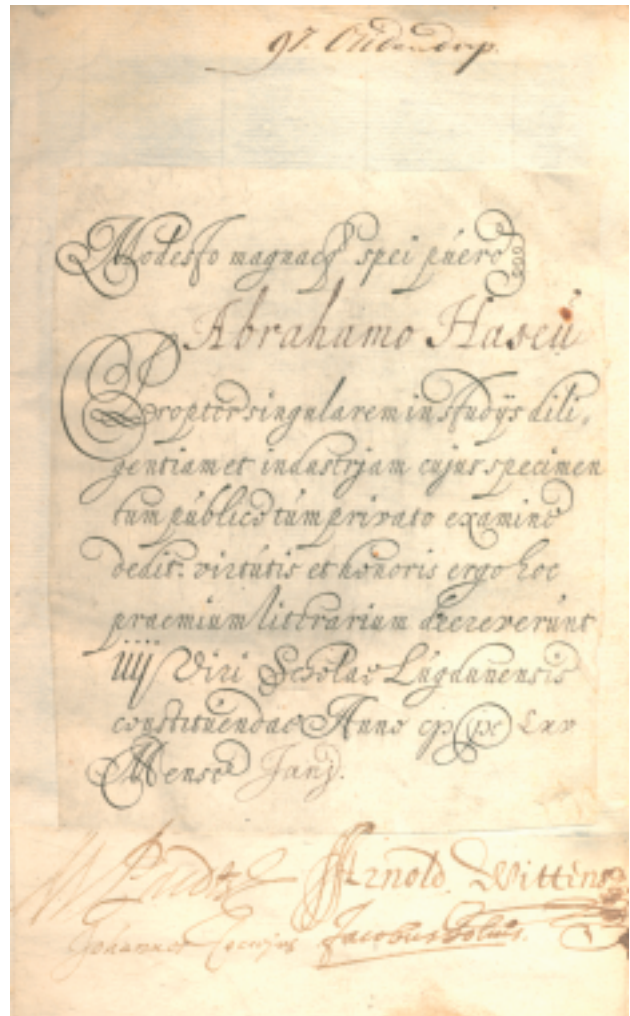 97.
Modesto magnaeq spei púero
Abrahamo
Propter singularem in studijs dili,
gentiam et industrjam cujus specimen
tum público túm privato examine
dedit: virtútis et honoris ergo hoc
praemium litterarium decreverúnt
iiij Viri Scholae Lúgdunensis
constitúendae Anno Lxv
Mense Janj.
Arnold. Wittens
Johannes Jacobus